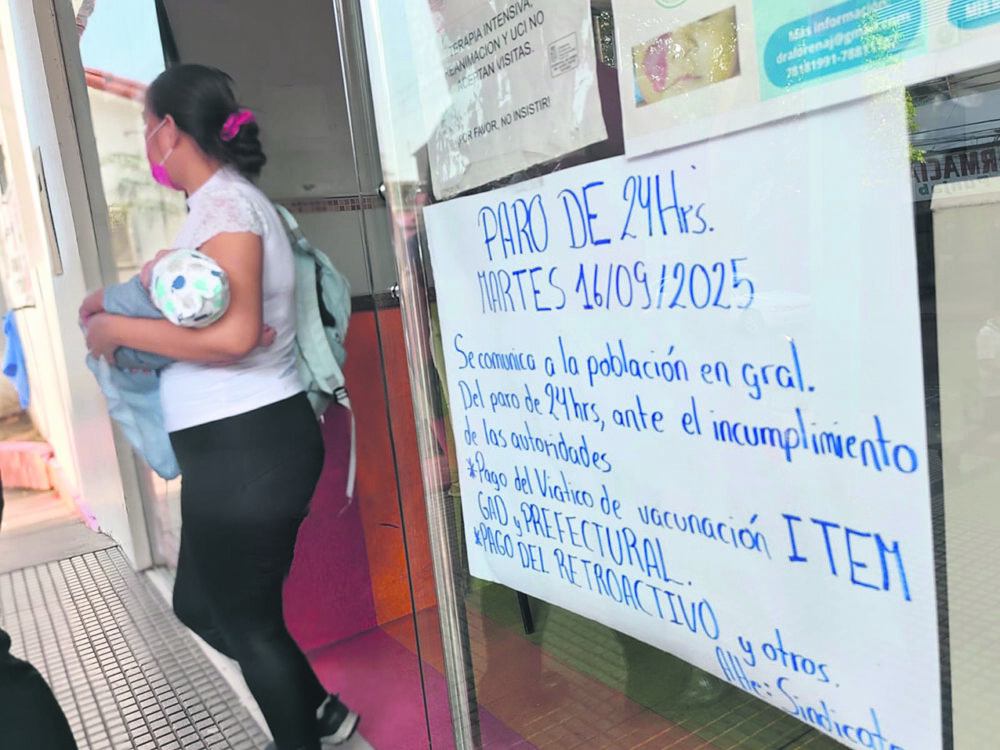 TERAPIA INTENSIVA,
REANIMACION Y UCI NO
ACEPTAN VISITAS.
POR FAVOR, NO INSISTIR!
Más información
PARO DE 24Hrs.
MARTES 16/09/2025
Se comunica a la población en gral.
Del paro de 24hrs, ante el incumplimiento
de las autoridades
*Pago del Viatico de vacunación ITEM
GAD y PREFECTURAL.
*PAGO DEL RETROACTIVO
y otros.
Atte: Sindicato